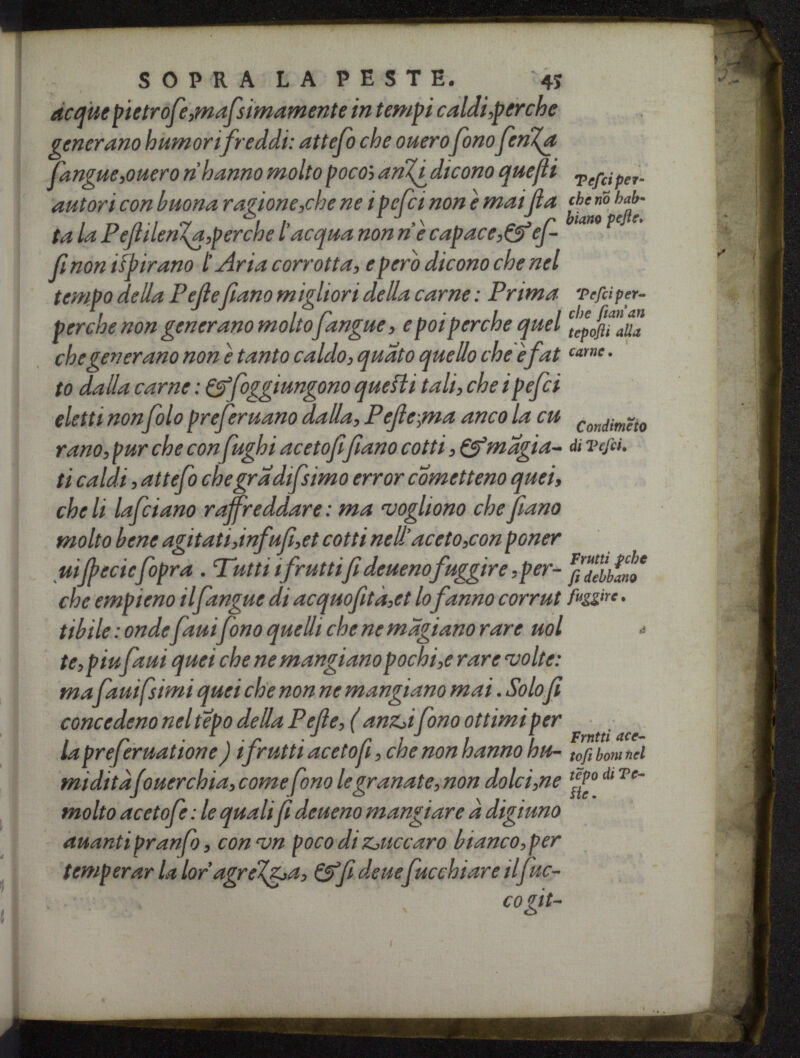 SOPRA LA PESTE. 45
acque pietrose,massimamente in tempi caldi,perche
generano humori freddi: atteso che ouero sono senza
sangue,ouero n'hanno molto poco; anzi dicono questi
autori con buona ragione,che ne i pesci non è mai sta
ta la Pestilenza,perche l'acqua non n'è capace,& es-
si non ispirano l'Aria corrotta, e però dicono che nel
tempo della Peste siano migliori della carne: Prima
perche non generano molto sangue, e poi perche quel
che generano non è tanto caldo, quāto quello che è fat
to dalla carne: & soggiungono questi tali, che i pesci
eletti non solo preseruano dalla, Peste;ma anco la cu
rano,pur che con sughi acetosi siano cotti, & māgia-
ti caldi, atteso che grādissimo error cōmetteno quei,
che li lasciano raffreddare: ma vogliono che siano
molto bene agitati,infusi,et cotti nell'aceto,con poner
ui specie sopra. Tutti i frutti si deueno fuggire, per-
che empieno il sangue di acquosità,et lo fanno corrut
tibile: onde saui sono quelli che ne māgiano rare uol
te, piu saui quei che ne mangiano pochi,e rare volte:
ma sauissimi quei che non ne mangiano mai. Solo si
concedeno nel tēpo della Peste, (anzi sono ottimi per
la preseruatione) i frutti acetosi, che non hanno hu-
midità souerchia, come sono le granate, non dolci,ne
molto acetose: le quali si deueno mangiare à digiuno
auanti pranso, con vn poco di zuccaro bianco,per
temperar la lor' agrezza, & si deue succhiare il suc-
co git-
Pesci per-
che nō hab-
biano peste.
Pesci per-
che sian' an
teposti alla
carne.
Condimēto
di Pesci.
Frutti pche
si debbano
fuggire.
Frntti ace-
tosi boni nel
tēpo di Pe-
ste.